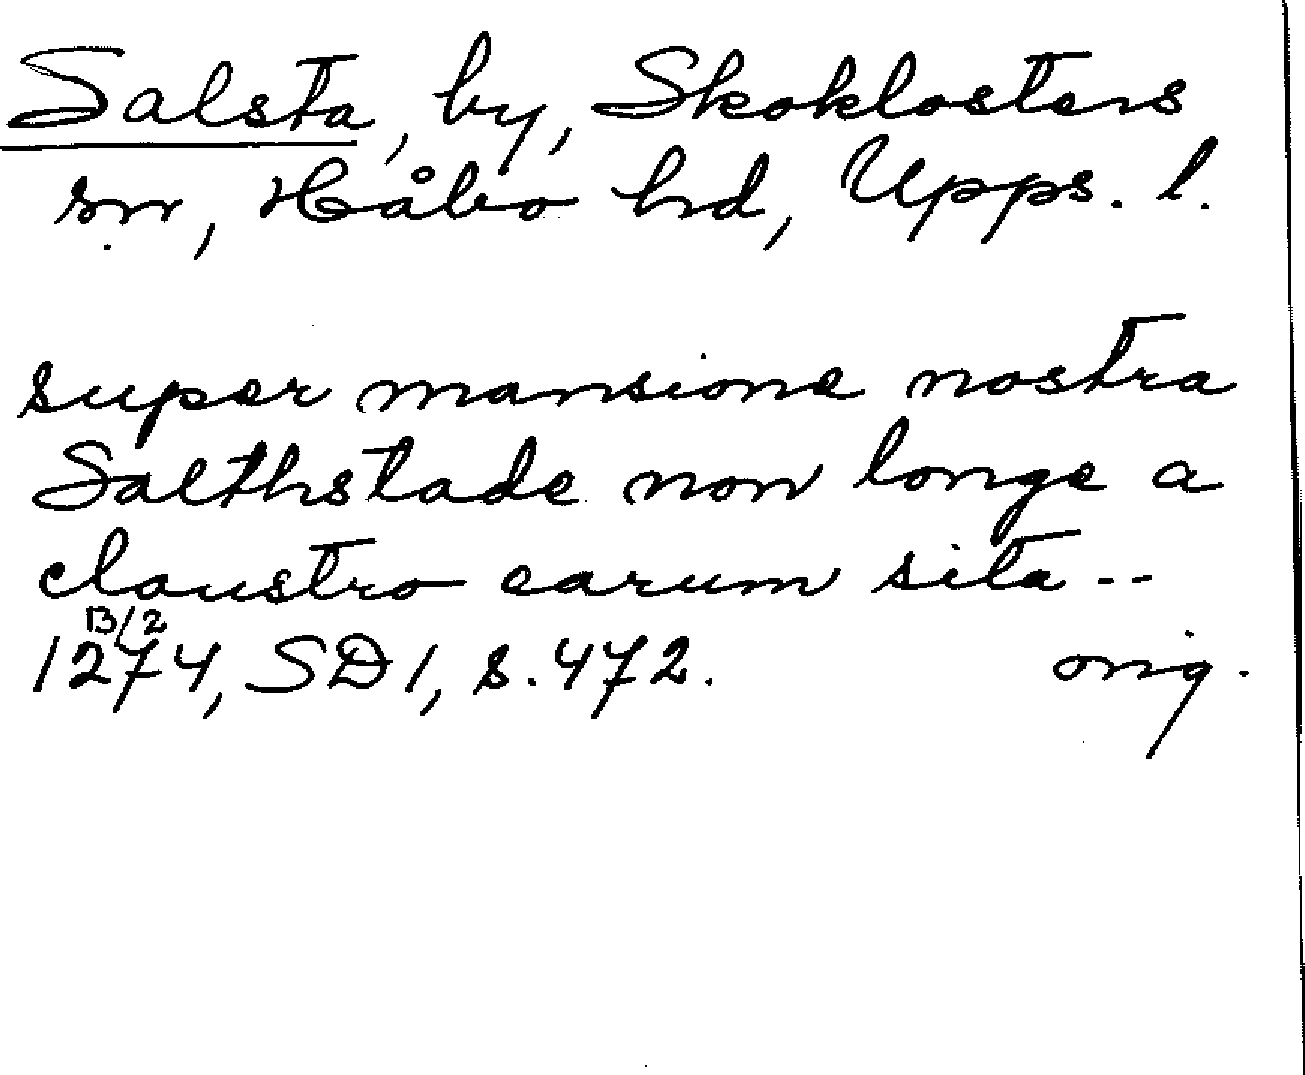 Salsta, by, Skoklosters
sn, Håbo hd, Upps. l.
super mansione nostra
Salthstade non longe a
claustro earum sita --
13/2
1274, SD 1, s. 472. orig.